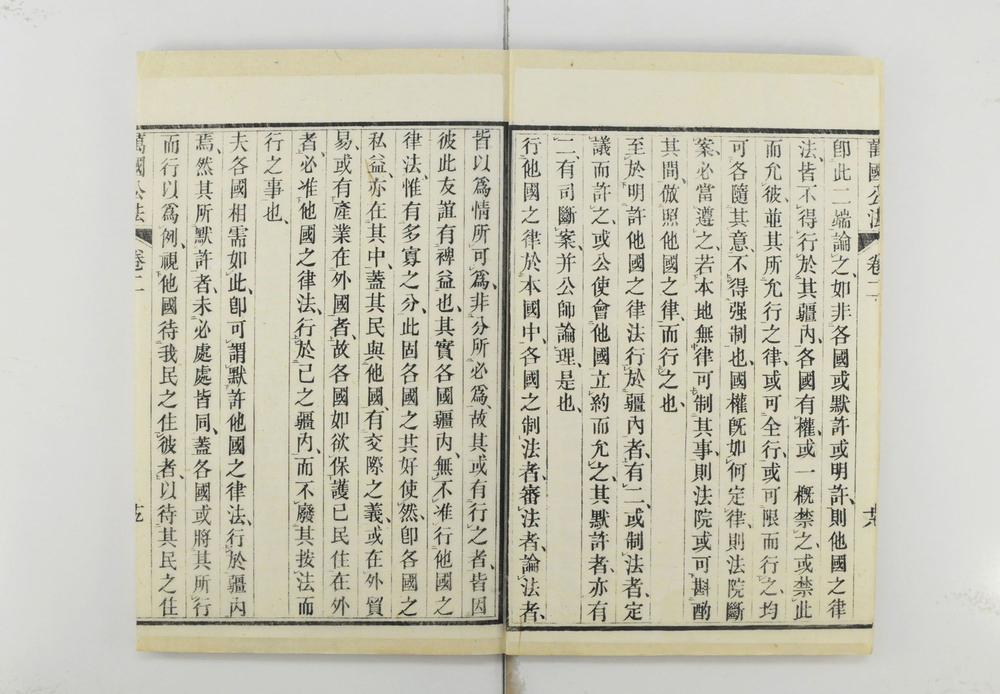 萬國公法 卷二
卽此二端論之、如非各國或默許或明許、則他國之律
法、皆不得行於其疆內、各國有權、或一概禁之、或禁此
而允彼、並其所允行之律、或可全行、或可限而行之、均
可各隨其意、不得强制也、國權旣如何定律、則法院斷
案、必當遵之、若本地無律可制其事、則法院或可斟酌
其間、倣照他國之律、而行之也、
至於明許他國之律法、行於疆內者、有二、或制法者、定
議而許之、或公使會他國立約而允之、其默許者、亦有
二、有司斷案、并公師論理、是也、
行他國之律於本國中、各國之制法者、審法者、論法者、
皆以爲情所可爲、非分所必爲、故其或有行之者、皆因
彼此友誼有裨益也、其實各國疆內、無不准行他國之
律法、惟有多寡之分、此固各國之共好使然、卽各國之
私益、亦在其中、蓋其民與他國、有交際之義、或在外貿
易、或有產業在外國者、故各國如欲保護己民住在外
者、必准他國之律法、行於己之疆內、而不廢其按法而
行之事也、
夫各國相需如此、卽可謂默許他國之律法、行於疆內
焉、然其所默許者、未必處處皆同、蓋各國或將其所行
而行以爲例、視他國待我民之住彼者、以待其民之住
萬國公法 卷二